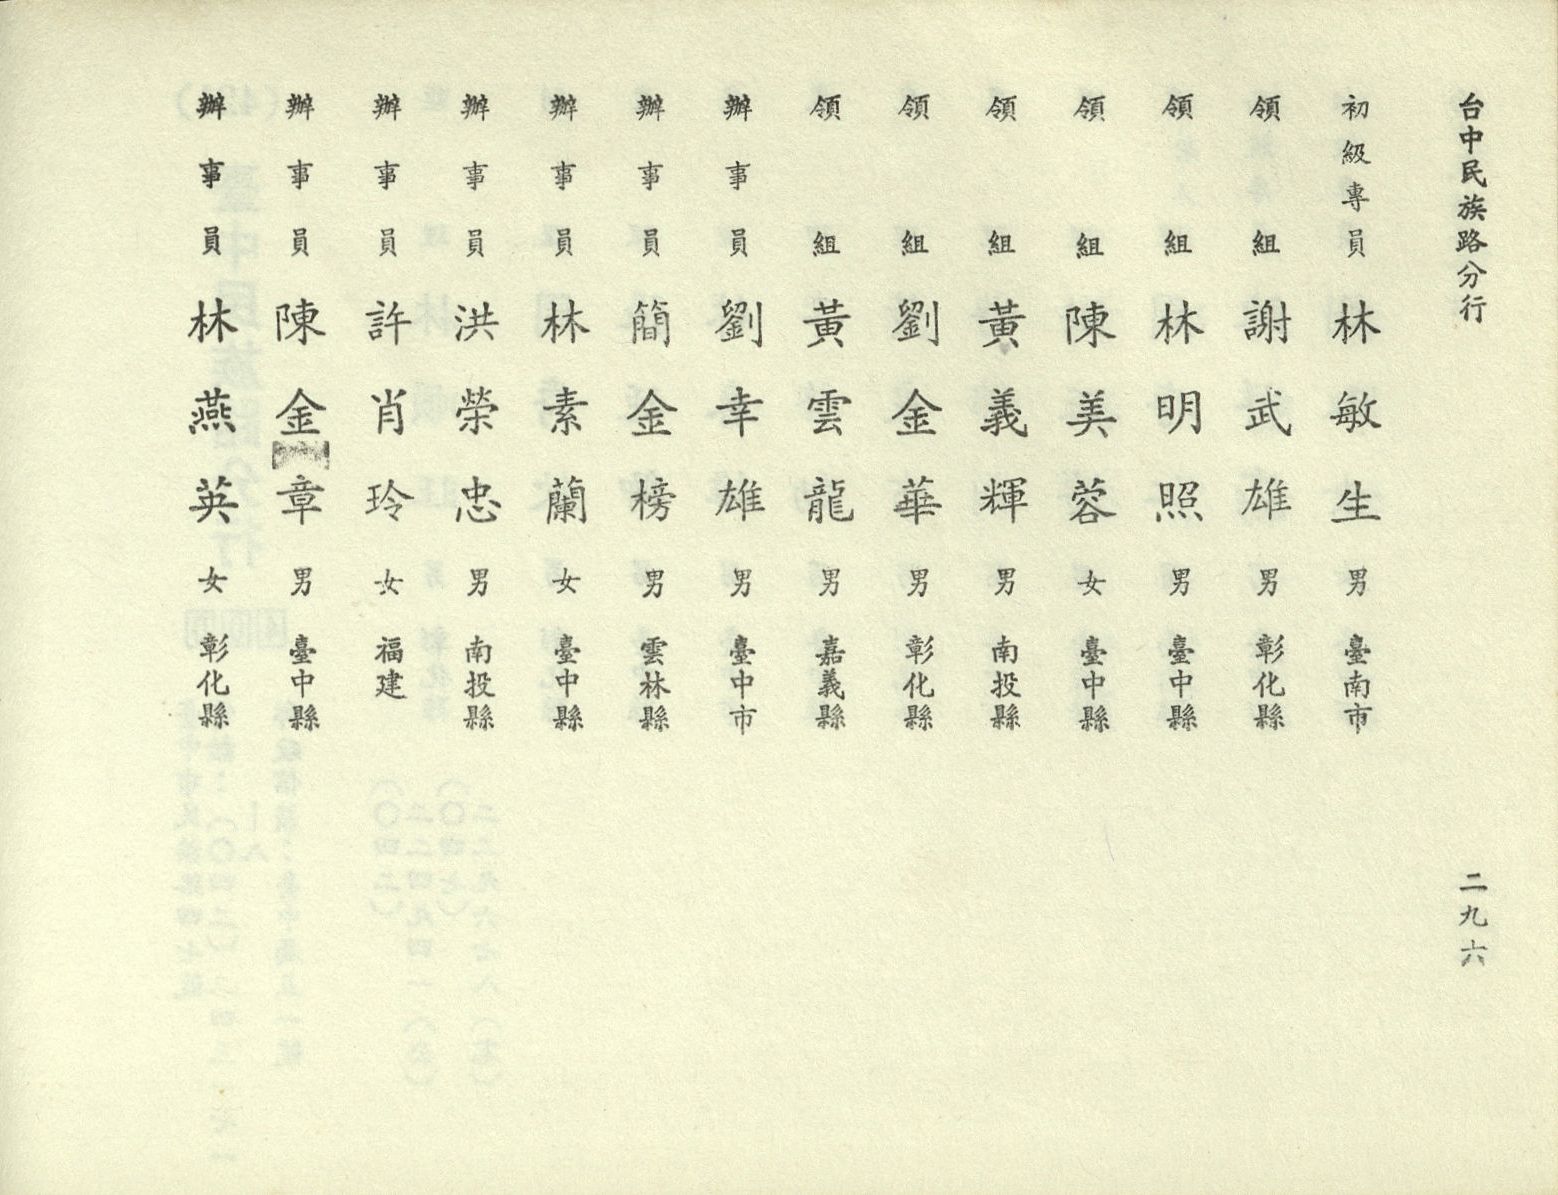 台中民族路分行 二九六
初級專員 林敏生 男 臺南市
領組 謝武雄 男 彰化縣
領組 林明照 男 臺中縣
領組 陳美蓉 女 臺中縣
領組 黃義輝 男 南投縣
領組 劉金華 男 彰化縣
領組 黃雲龍 男 嘉義縣
辦事員 劉幸雄 男 臺中市
辦事員 簡金榜 男 雲林縣
辦事員 林素蘭 女 臺中縣
辦事員 洪榮忠 男 南投縣
辦事員 許肖玲 女 福建
辦事員 陳金章 男 臺中縣
辦事員 林燕英 女 彰化縣